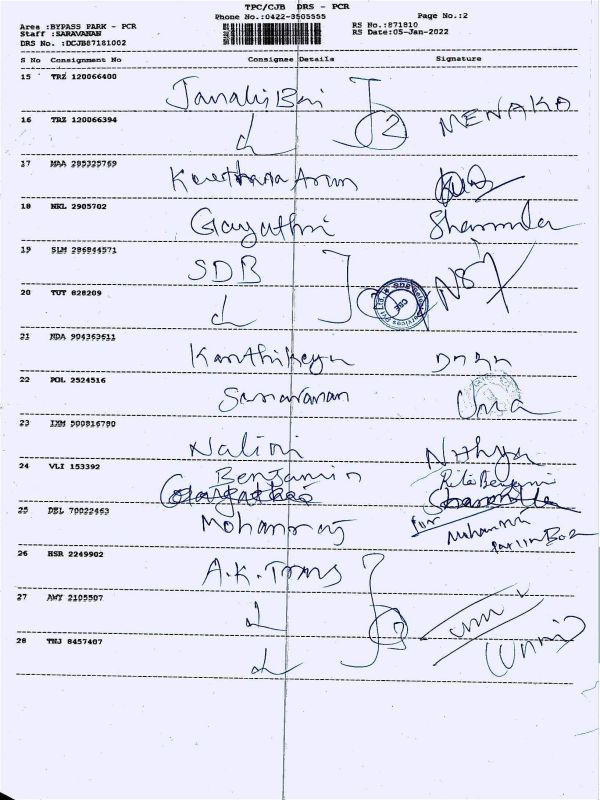 TPC/CJB DRS - PCR
Phone No.:0422-3505555 Page No.:2
Area :BYPASS PARK - PCR RS No.:871810
Staff :SARAVANAN RS Date:05-Jan-2022
DRS No. :DCJB87181002
S No Consignment No Consignee Details Signature
15 TRZ 120066400
Janaki Bai 2 MENAKA
16 TRZ 120066394
17 MAA 285325769
Keerthana Arun
18 NKL 2905702
Gayathri Sharmila
19 SLM 286844571
SDB
20 TUT 828209
21 NDA 904363611
Karthikeyn
22 POL 2524516
Saravanan Uma
23 IXM 500816790
Nalini Nithya
24 VLI 153392
Benjamin
25 DEL 70022463
Mohanraj for
26 HSR 2249902
A.K. Trans
27 AWY 2105507
3
28 TMJ 8457407
(Unni)